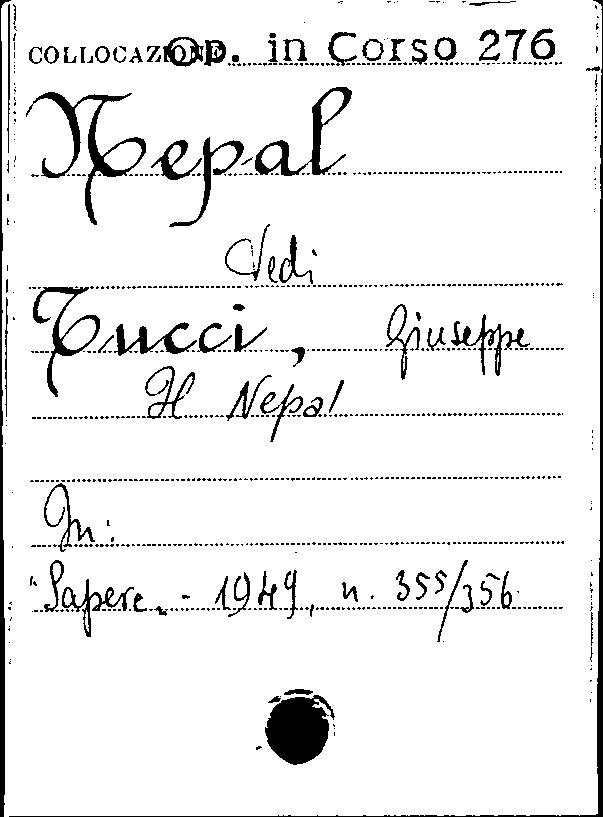 COLLOCAZIONE Op. in Corso 276
Nepal
Vedi
Tucci, Giuseppe
Il Nepal
In:
"Sapere„ - 1949, n. 355/356